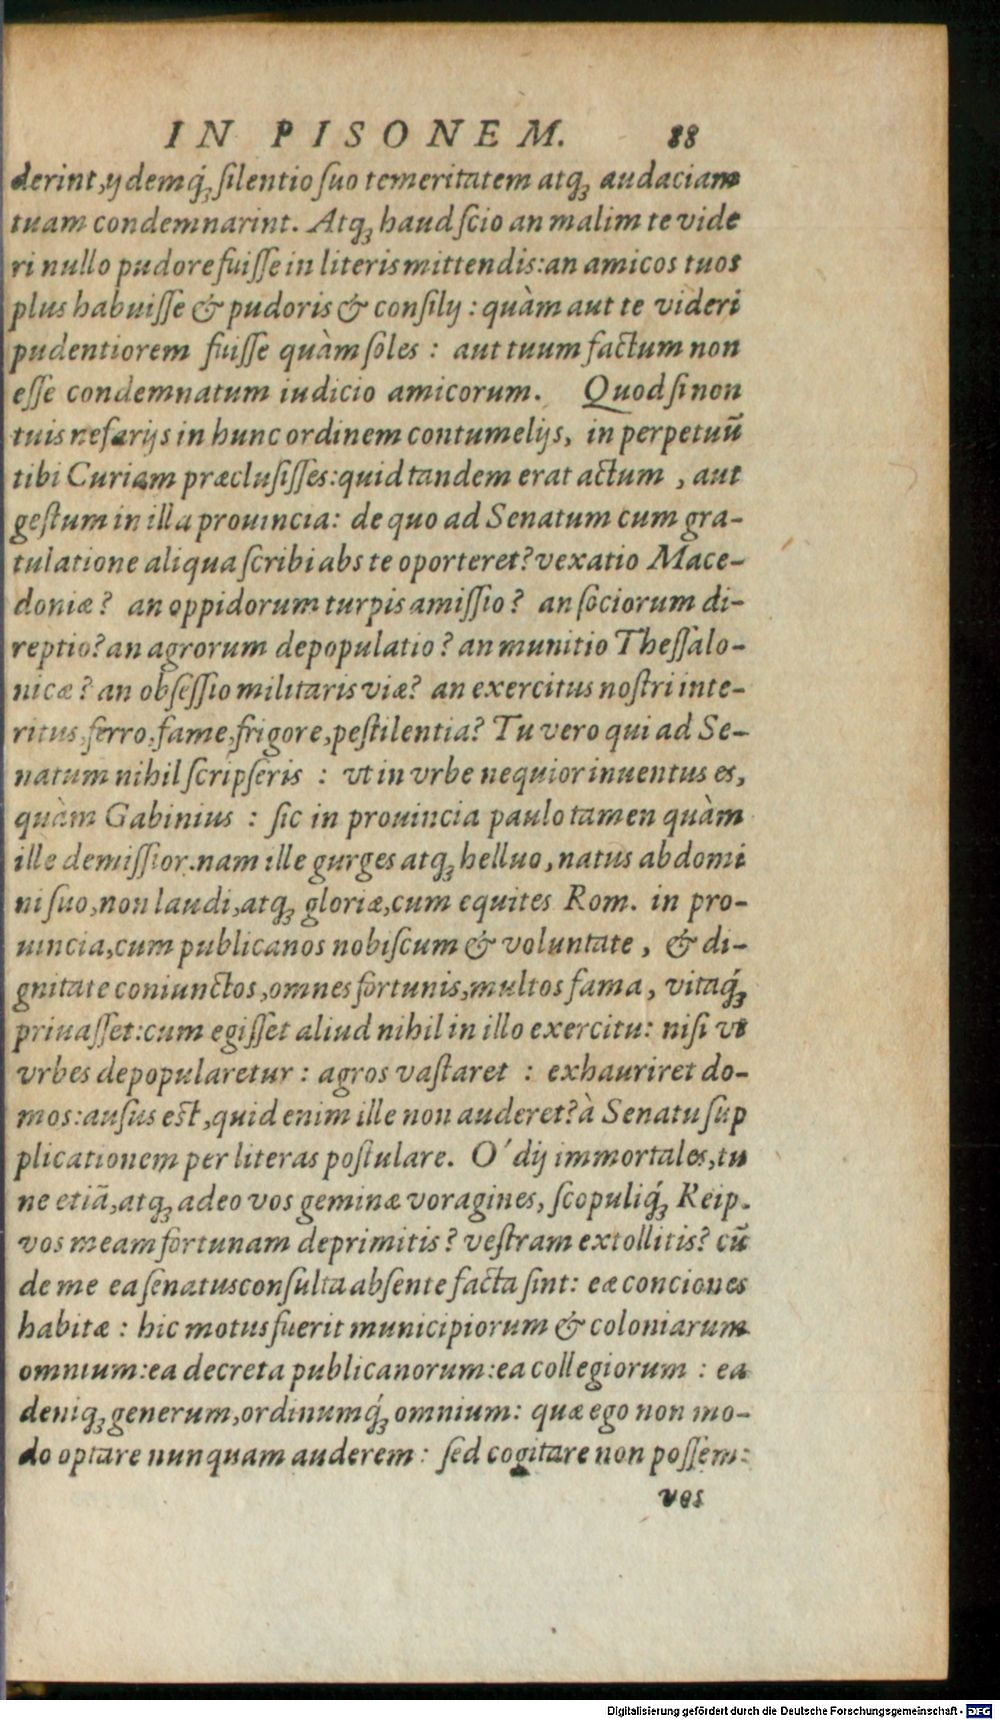 IN PISONEM. 88
derint, ijdemq́; silentio suo temeritatem atq; audaciam
tuam condemnarint. Atq; haud scio an malim te vide
ri nullo pudore fuisse in literis mittendis: an amicos tuos
plus habuisse & pudoris & consilij : quàm aut te videri
pudentiorem fuisse quàm soles : aut tuum factum non
esse condemnatum iudicio amicorum. Quod si non
tuis nefarijs in hunc ordinem contumelijs, in perpetuũ
tibi Curiam præclusisses: quid tandem erat actum , aut
gestum in illa prouincia: de quo ad Senatum cum gra-
tulatione aliqua scribi abs te oporteret? vexatio Mace-
doniæ? an oppidorum turpis amissio? an sociorum di-
reptio? an agrorum depopulatio? an munitio Thessalo-
nicæ? an obsessio militaris viæ? an exercitus nostri inte-
ritus, ferro, fame, frigore, pestilentia? Tu vero qui ad Se-
natum nihil scripseris : vt in vrbe nequior inuentus es,
quàm Gabinius : sic in prouincia paulo tamen quàm
ille demissior. nam ille gurges atq; helluo, natus abdomi
ni suo, non laudi, atq; gloriæ, cum equites Rom. in pro-
uincia, cum publicanos nobiscum & voluntate , & di-
gnitate coniunctos, omnes fortunis, multos fama, vitaq́;
priuasset: cum egisset aliud nihil in illo exercitu: nisi vt
vrbes depopularetur : agros vastaret : exhauriret do-
mos: ausus est, quid enim ille non auderet? à Senatu sup
plicationem per literas postulare. O' dij immortales, tu
ne etiã, atq; adeo vos geminæ voragines, scopuliq́; Reip.
vos meam fortunam deprimitis? vestram extollitis? cũ
de me ea senatusconsulta absente facta sint: eæ conciones
habitæ : hic motus fuerit municipiorum & coloniarum
omnium: ea decreta publicanorum: ea collegiorum : ea
deniq; generum, ordinumq́; omnium: quæ ego non mo-
do optare nunquam auderem: sed cogitare non possem:
vos
Digitalisierung gefördert durch die Deutsche Forschungsgemeinschaft - DFG